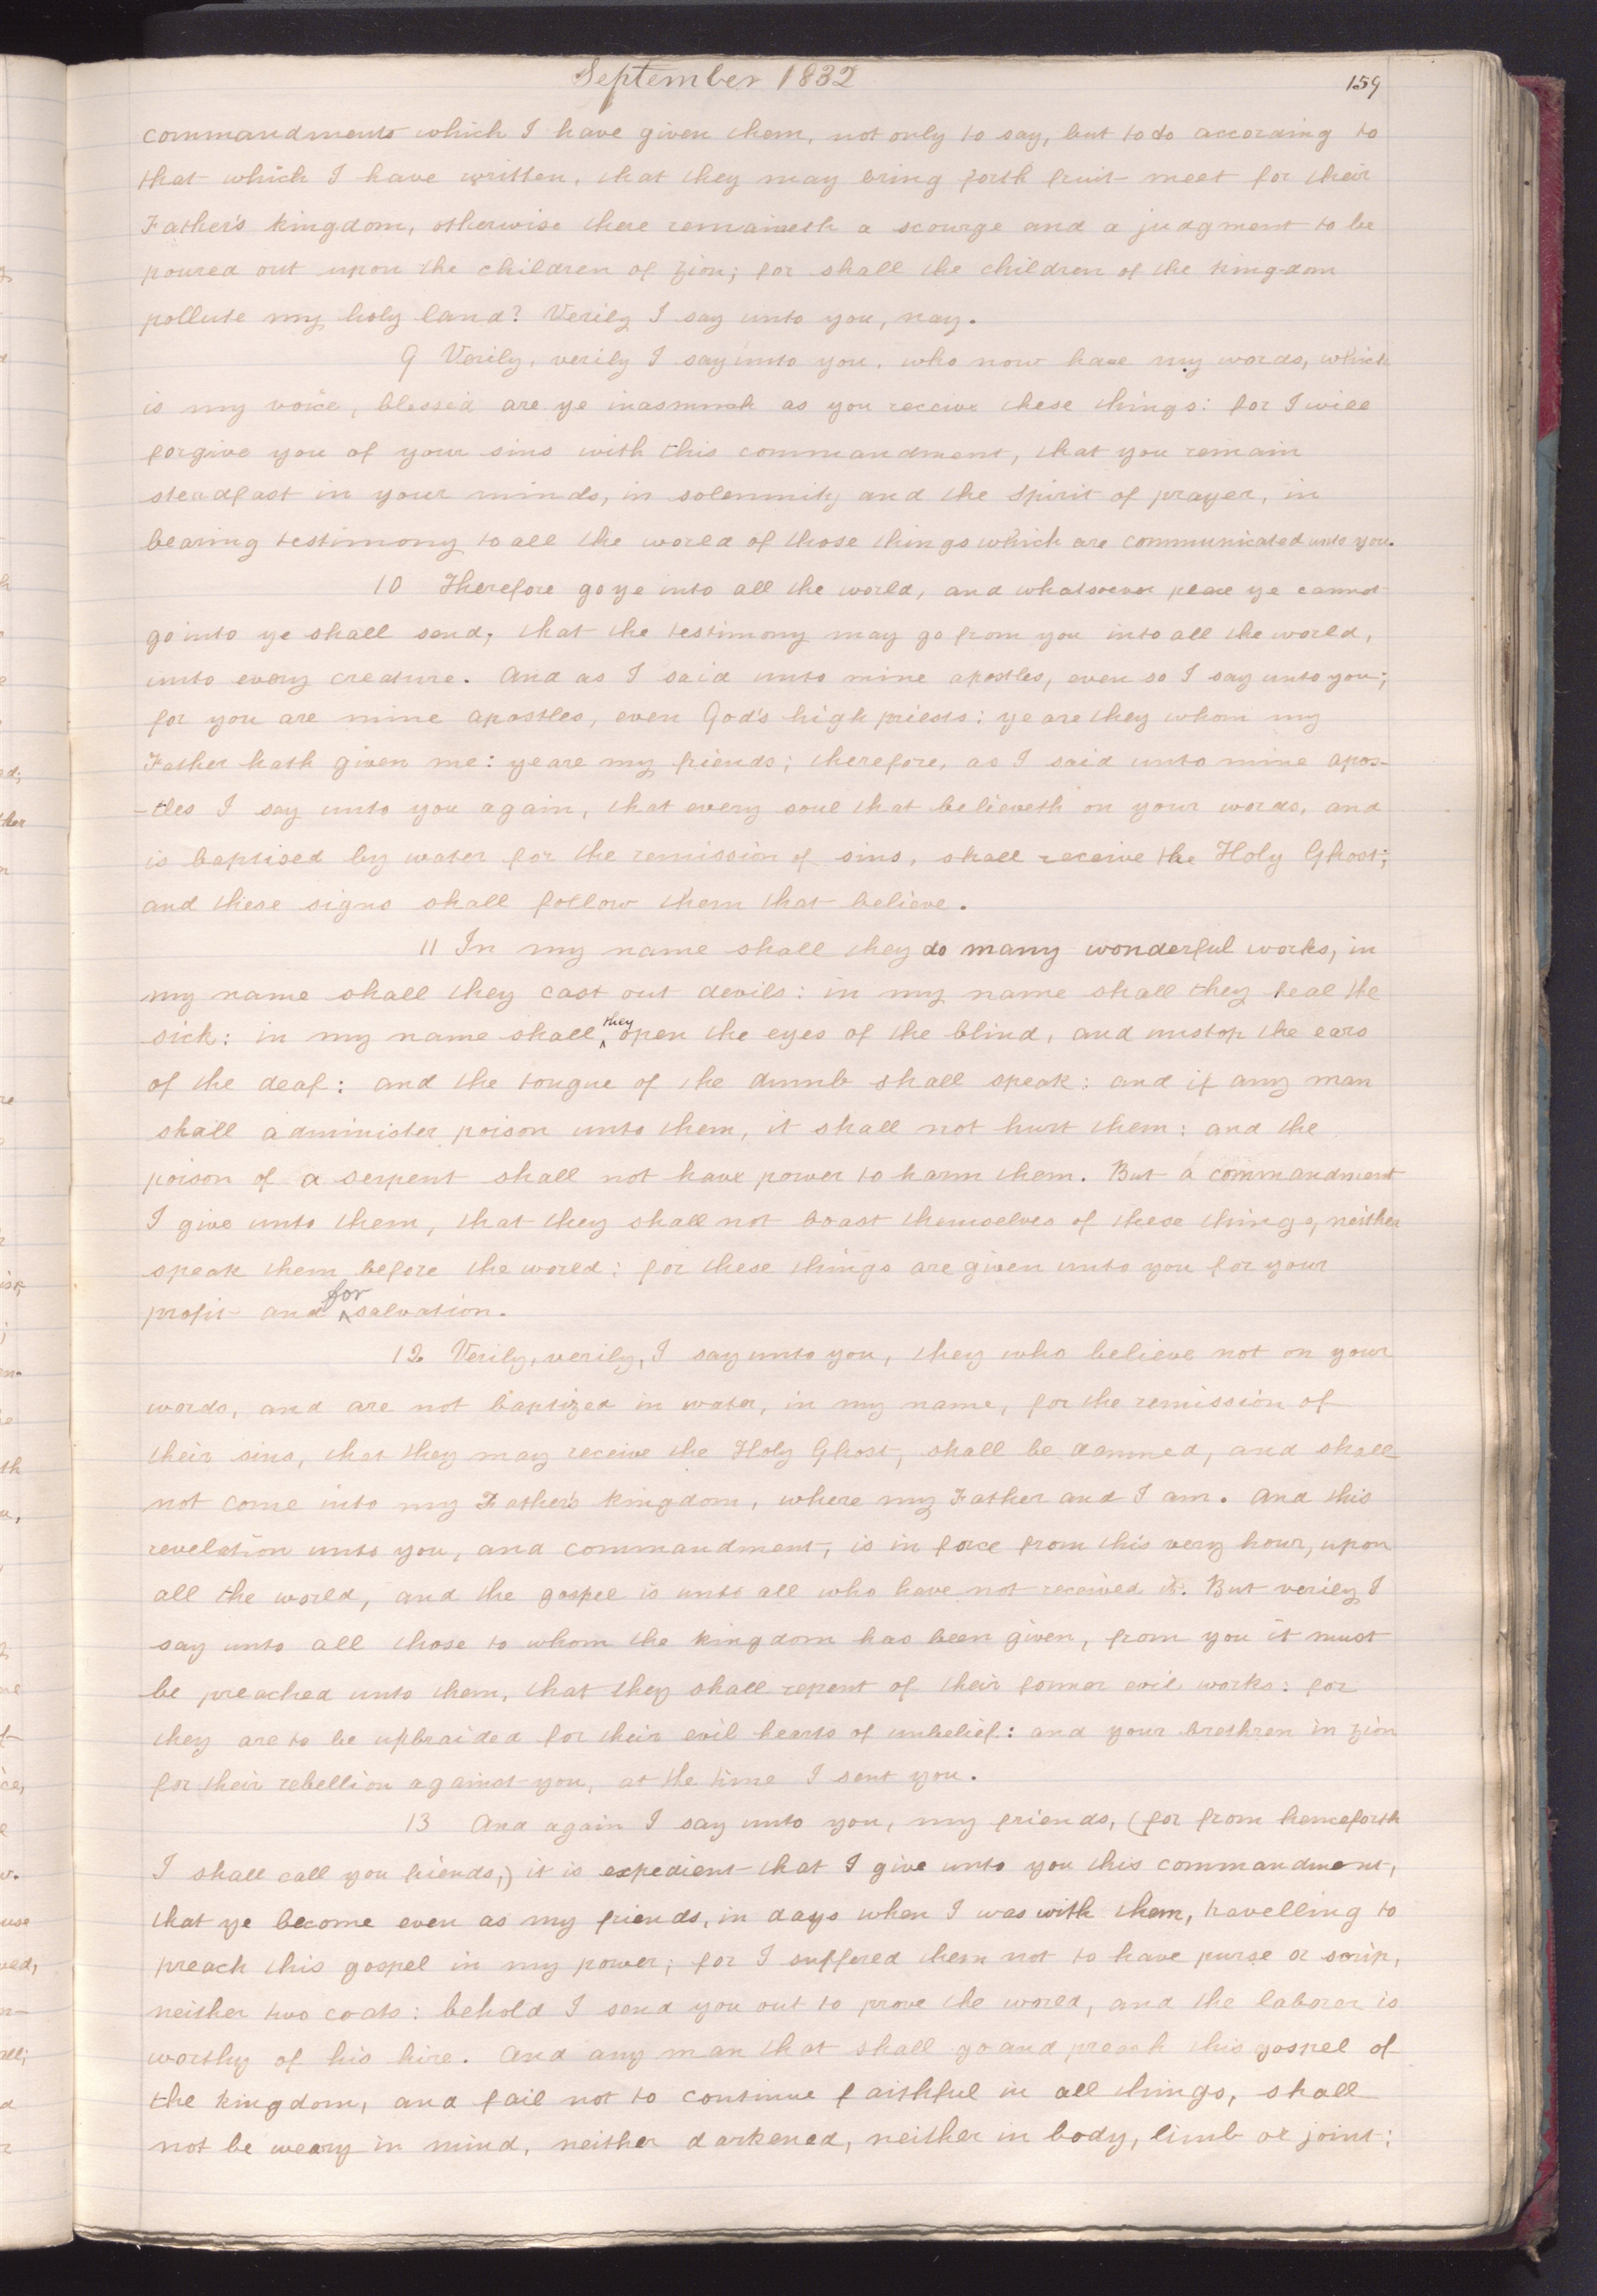 September 1832
159
commandments which I have given them, not only to say, but to do according to
that which I have written, that they may bring forth fruit meet for their
Father's kingdom, otherwise there remaineth a scourge and a judgment to be
poured out upon the children of Zion; for shall the children of the kingdom
pollute my holy land? Verily I say unto you, nay.
9 Verily, verily I say unto you, who now have my words, which
is my voice, blessed are ye inasmuch as you receive these things: for I will
forgive you of your sins with this commandment, that you remain
steadfast in your minds, in solemnity and the Spirit of prayer, in
bearing testimony to all the world of those things which are communicated unto you.
10 Therefore go ye into all the world, and whatsoever place ye cannot
go into ye shall send, that the testimony may go from you into all the world,
unto every creature. And as I said unto mine apostles, even so I say unto you;
for you are mine apostles, even God's high priests: ye are they whom my
Father hath given me: ye are my friends; therefore, as I said unto mine apos-
-tles I say unto you again, that every soul that believeth on your words, and
is baptised by water for the remission of sins, shall receive the Holy Ghost;
and these signs shall follow them that believe.
11 In my name shall they do many wonderful works, in
my name shall they cast out devils: in my name shall they heal the
sick: in my name shall they open the eyes of the blind, and unstop the ears
of the deaf: and the tongue of the dumb shall speak: and if any man
shall administer poison unto them, it shall not hurt them: and the
poison of a serpent shall not have power to harm them. But a commandment
I give unto them, that they shall not boast themselves of these things, neither
speak them before the world: for these things are given unto you for your
profit and for salvation.
12 Verily, verily, I say unto you, they who believe not on your
words, and are not baptized in water, in my name, for the remission of
their sins, that they may receive the Holy Ghost, shall be damned, and shall
not come into my Father's kingdom, where my Father and I am. And this
revelation unto you, and commandment, is in force from this very hour, upon
all the world, and the gospel is unto all who have not received it. But verily I
say unto all those to whom the kingdom has been given, from you it must
be preached unto them, that they shall repent of their former evil works: for
they are to be upbraided for their evil hearts of unbelief: and your brethren in Zion
for their rebellion against you, at the time I sent you.
13 And again I say unto you, my friends, (for from henceforth
I shall call you friends,) it is expedient that I give unto you this commandment,
that ye become even as my friends, in days when I was with them, travelling to
preach this gospel in my power; for I suffered them not to have purse or scrip,
neither two coats: behold I send you out to prove the world, and the laborer is
worthy of his hire. And any man that shall go and preach this gospel of
the kingdom, and fail not to continue faithful in all things, shall
not be weary in mind, neither darkened, neither in body, limb or joint: